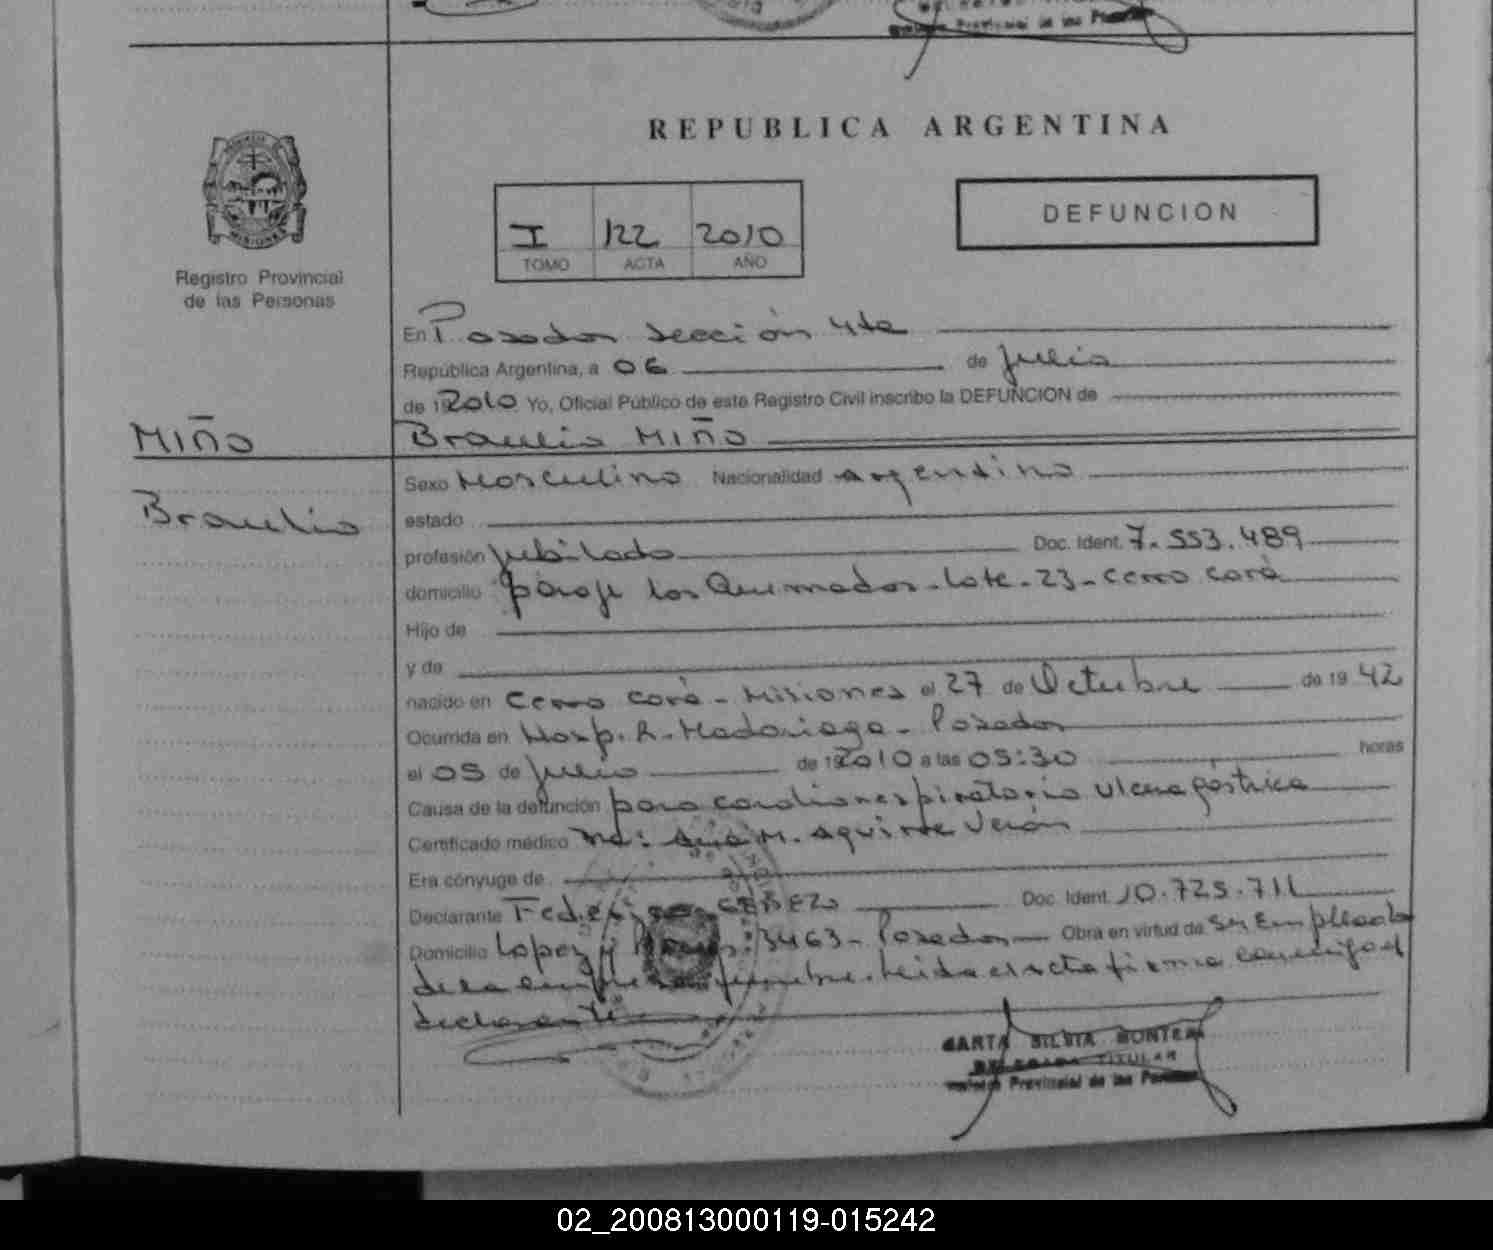 Provincial de las
REPUBLICA ARGENTINA
MISIONES
I 122 2010
TOMO ACTA AÑO
DEFUNCION
Registro Provincial
de las Personas
En Posadas sección 4ta
República Argentina, a 06 de julio
de 19 2010 Yo, Oficial Público de este Registro Civil inscribo la DEFUNCION de
MIÑO
Braulio MIÑO
Sexo Masculino Nacionalidad argentino
Braulio
estado
profesión jubilado Doc. Ident. 7.553.489
domicilio paraje los Quemados - lote - 23 - cerro corá
Hijo de
y de
nacido en Cerro corá - Misiones el 27 de Octubre de 19 42
Ocurrida en Hosp. R. Madariaga - Posadas
el 05 de julio de 19 2010 a las 05:30 horas
Causa de la defunción paro cardiorespiratorio ulcera gástrica
Certificado médico Md: Ana M. Aguirre Verón
Era cónyuge de
Declarante Federico Doc. Ident. 10.725.711
Domicilio Lopez y 3463 - Posadas Obra en virtud de ser Empleado
de la empresa fúnebre. Leida el acta firma conmigo el
declarante
SILVIA
TITULAR
Provincial de las
02_200813000119-015242